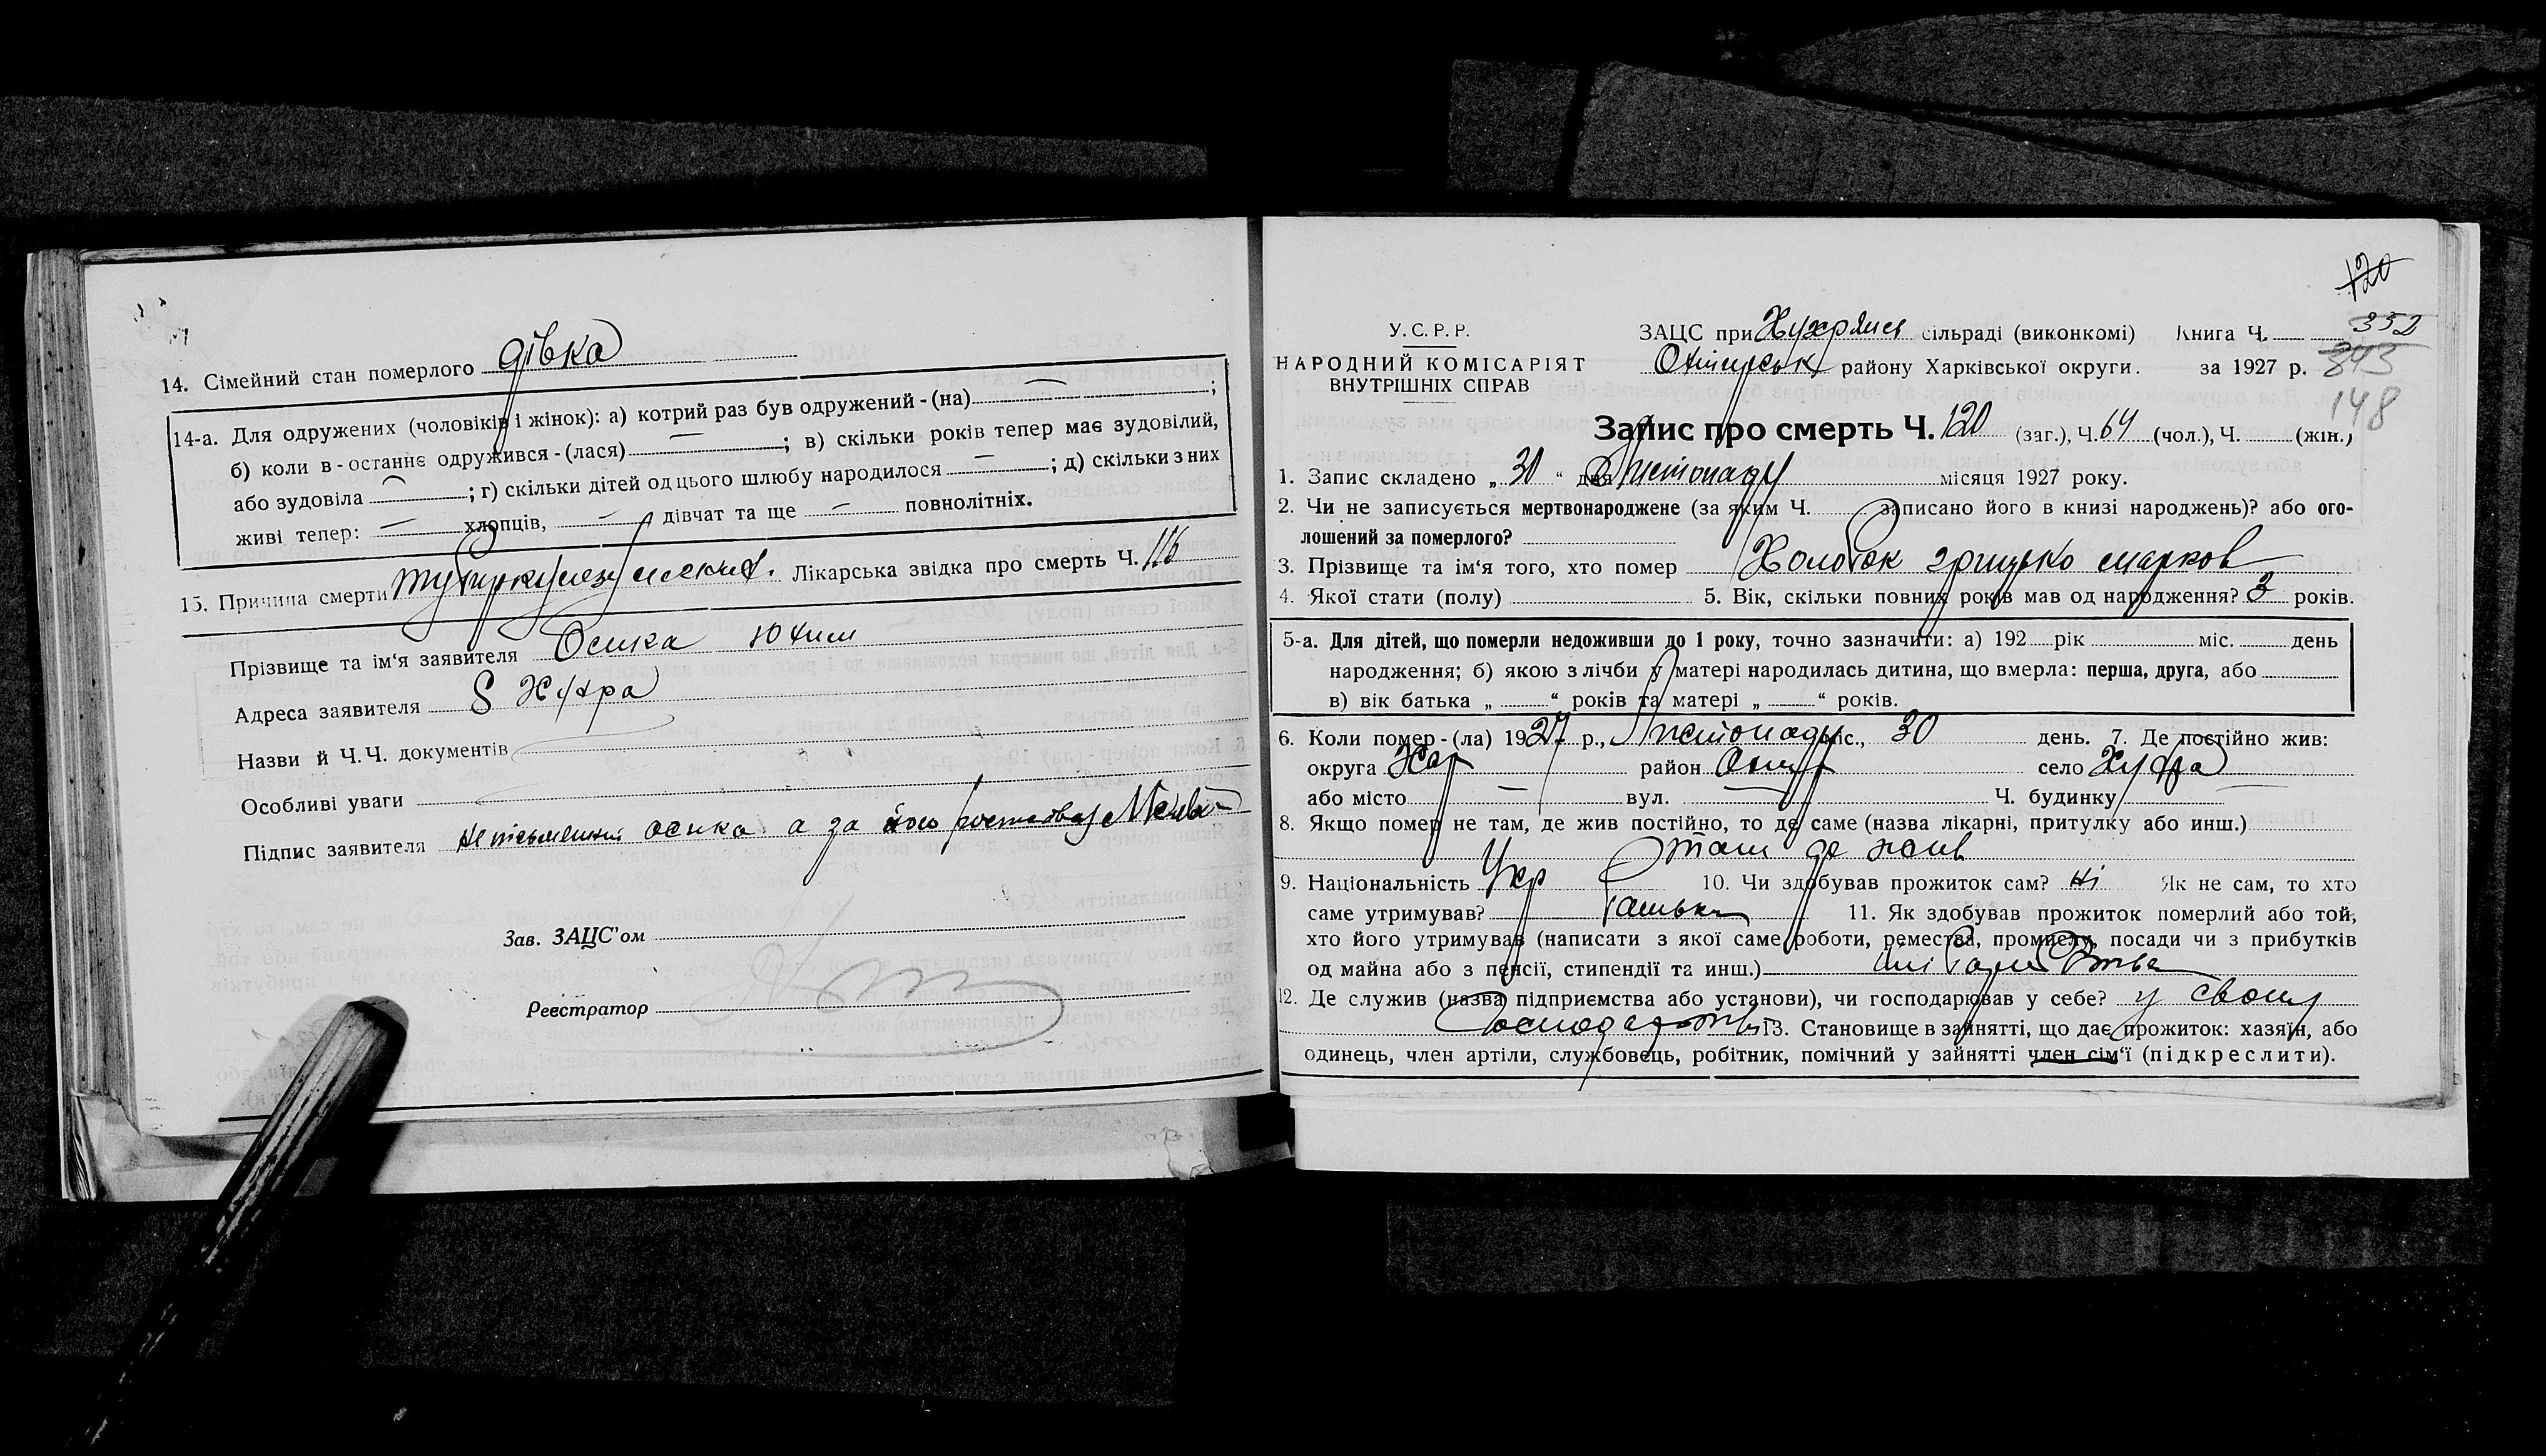 14. Сімейний стан померлого дівка
14-а. Для одружених (чоловіків і жінок): а) котрий раз був одружений - (на) — ;
б) коли в - останнє одружився - (лася) — ; в) скільки років тепер має зудовілий,
або зудовіла — ; г) скільки дітей од цього шлюбу народилося — ; д) скільки з них
живі тепер: — хлопців, — дівчат та ще — повнолітніх.
15. Причина смерти Лікарська звідка про смерть Ч. 116
Прізвище та ім'я заявителя Осика Юхим
Адреса заявителя Хухра
Назви й Ч. Ч. документів
Особливі уваги
Підпис заявителя неписьменний осика а за його
Зав. ЗАЦС'ом
Реєстратор
120
У. С. Р. Р.
НАРОДНИЙ КОМІСАРІЯТ
ВНУТРІШНІХ СПРАВ
ЗАЦС при Хухрянск сільраді (виконкомі) Книга Ч. 352
Охтирськ району Харківської округи. за 1927 р. 343
148
Запис про смерть Ч. 120 (заг.), Ч. 64 (чол.), Ч. (жін.)
1. Запис складено „ 30 “ дня Листопаду місяця 1927 року.
2. Чи не записується мертвонароджене (за яким Ч. записано його в книзі народжень)? або ого-
лошений за померлого?
3. Прізвище та ім'я того, хто помер Холодок Грицько Марков
4. Якої стати (полу) 5. Вік, скільки повних років мав од народження? 3 років.
5-а. Для дітей, що померли недоживши до 1 року, точно зазначити: а) 192 рік міс. день
народження; б) якою з лічби у матері народилась дитина, що вмерла: перша, друга, або
в) вік батька „ “ років та матері „ “ років.
6. Коли помер - (ла) 1927 р., Листопаду міс., 30 день. 7. Де постійно жив:
округа Хар район Охтир село Хухра
або місто — вул. — Ч. будинку —
8. Якщо помер не там, де жив постійно, то де саме (назва лікарні, притулку або инш.)
там де жив
9. Національність Укр 10. Чи здобував прожиток сам? ні Як не сам, то хто
саме утримував? батьки 11. Як здобував прожиток померлий або той,
хто його утримував (написати з якої саме роботи, ремества, промислу, посади чи з прибутків
од майна або з пенсії, стипендії та инш.) хліборобства
12. Де служив (назва підприємства або установи), чи господарював у себе? у своїм
господарстві 13. Становище в зайнятті, що дає прожиток: хазяїн, або
одинець, член артіли, службовець, робітник, помічний у зайнятті член сім'ї (підкреслити).